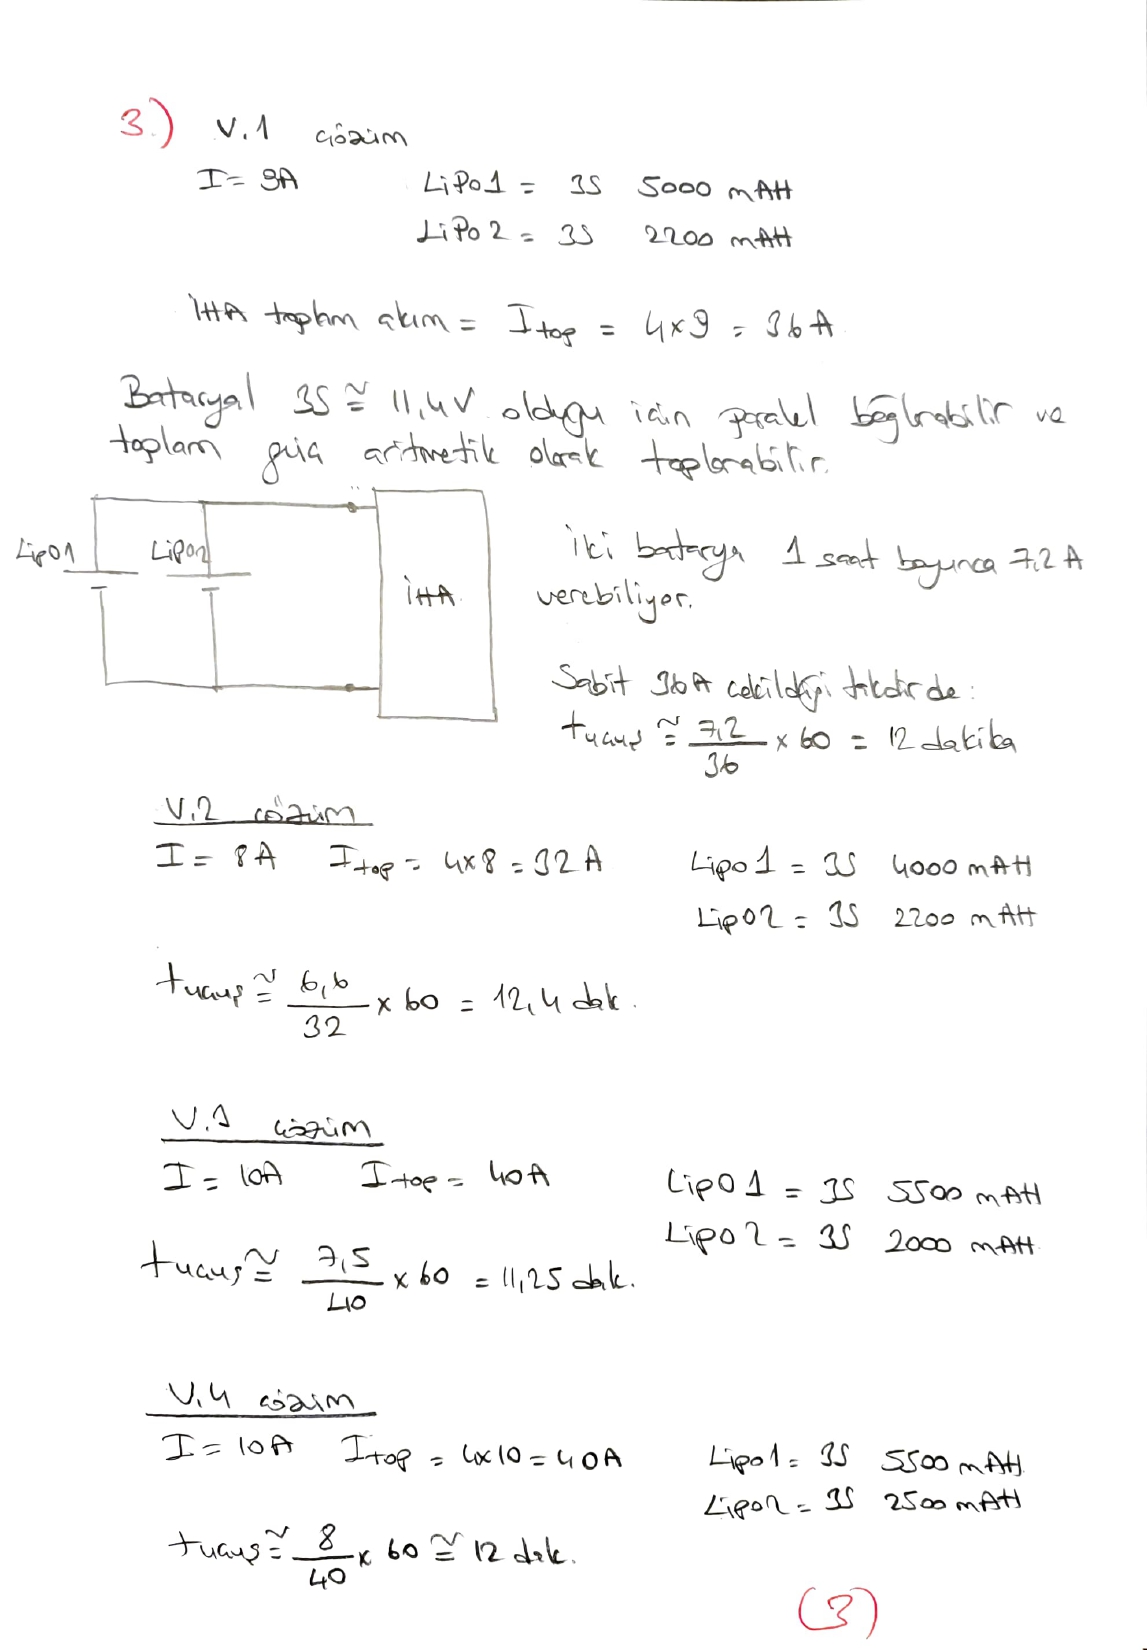 3.) V.1 çözüm
I = 9A LiPo1 = 3S 5000 mAH
LiPo2 = 3S 2200 mAH
İHA toplam akım = Itop = 4x9 = 36A
Bataryal 3S ≅ 11,4V olduğu için paralel bağlanabilir ve
toplam güç aritmetik olarak toplanabilir.
Lipo1 Lipo2 İHA
İki batarya 1 saat boyunca 7,2 A
verebiliyor.
Sabit 36A çekildiği takdirde:
tuçuş ≅ 7,2/36 x 60 = 12 dakika
V.2 çözüm
I = 8A Itop = 4x8 = 32A Lipo1 = 3S 4000 mAH
Lipo2 = 3S 2200 mAH
tuçuş ≅ 6,6/32 x 60 = 12,4 dak.
V.3 çözüm
I = 10A Itop = 40A Lipo1 = 3S 5500 mAH
Lipo2 = 3S 2000 mAH
tuçuş ≅ 7,5/40 x 60 = 11,25 dak.
V.4 çözüm
I = 10A Itop = 4x10 = 40A Lipo1 = 3S 5500 mAH
Lipo2 = 3S 2500 mAH
tuçuş ≅ 8/40 x 60 ≅ 12 dak.
(3)